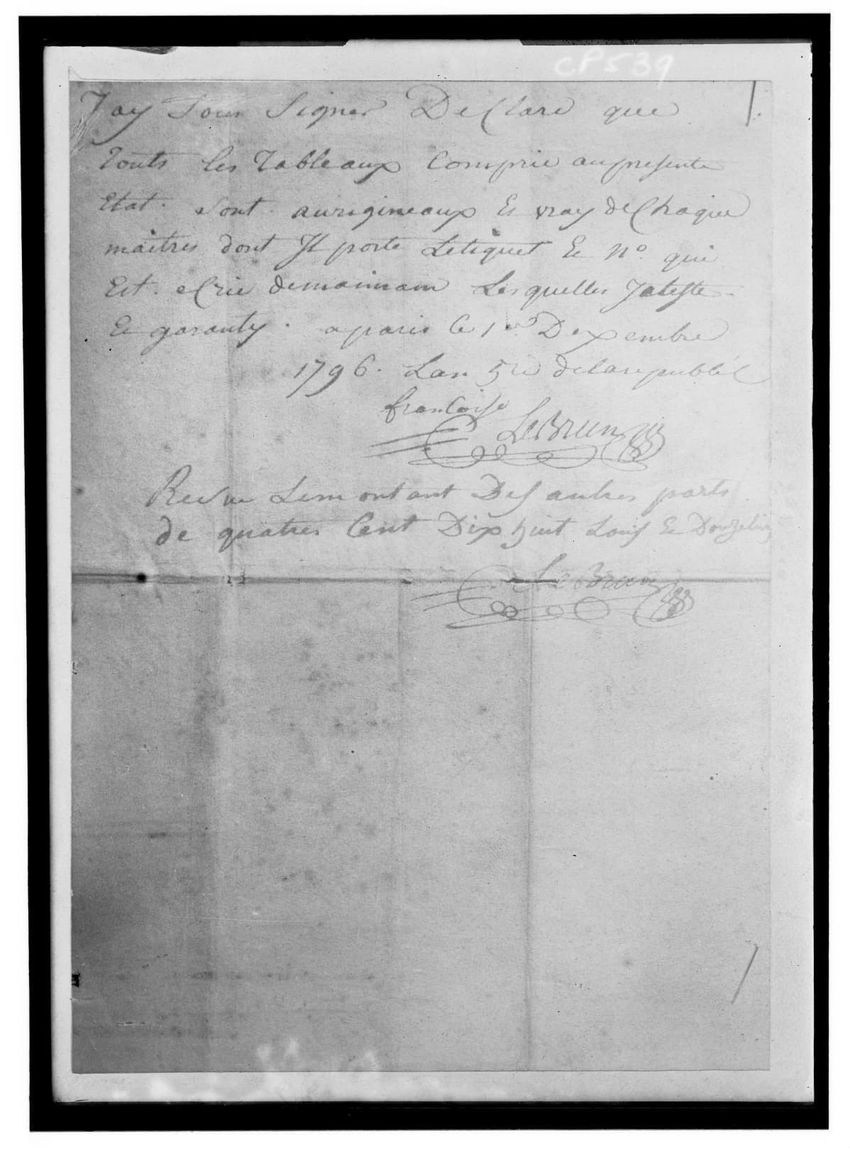 CP539
Jay Sous Signer Declare que
touts les Tableaux Comprie au presente
Etat. sont aurigineaux Et vray de Chaque
maitres dont Il porte Letiquet Et No qui
Est. eCrie demaimam Lesquelles Jateste
Et garanty. a paris Ce 1er Dexembre
1796. Lan 5ie de la republic
francoise
LeBrun
Recue Lemontant Des autres parts
de quatres Cent Dix huit Louis Et Douze
LeBrun